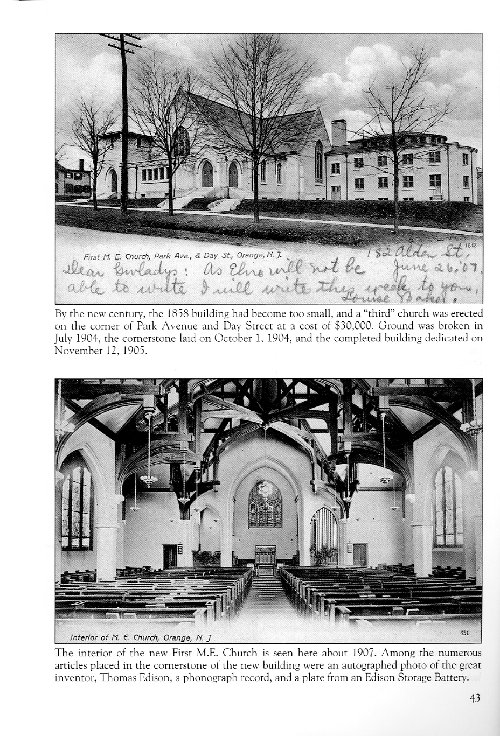 First M. E. Church, Park Ave., & Day St., Orange, N. J.
182 Alden St,
Dear Gwladys: As Elma will not be June 26, 07.
able to write I will write this week to you.
Louise Baker.
By the new century, the 1858 building had become too small, and a "third" church was erected
on the corner of Park Avenue and Day Street at a cost of $30,000. Ground was broken in
July 1904, the cornerstone laid on October 1, 1904, and the completed building dedicated on
November 12, 1905.
Interior of M. E. Church, Orange, N. J
The interior of the new First M.E. Church is seen here about 1907. Among the numerous
articles placed in the cornerstone of the new building were an autographed photo of the great
inventor, Thomas Edison, a phonograph record, and a plate from an Edison Storage Battery.
43